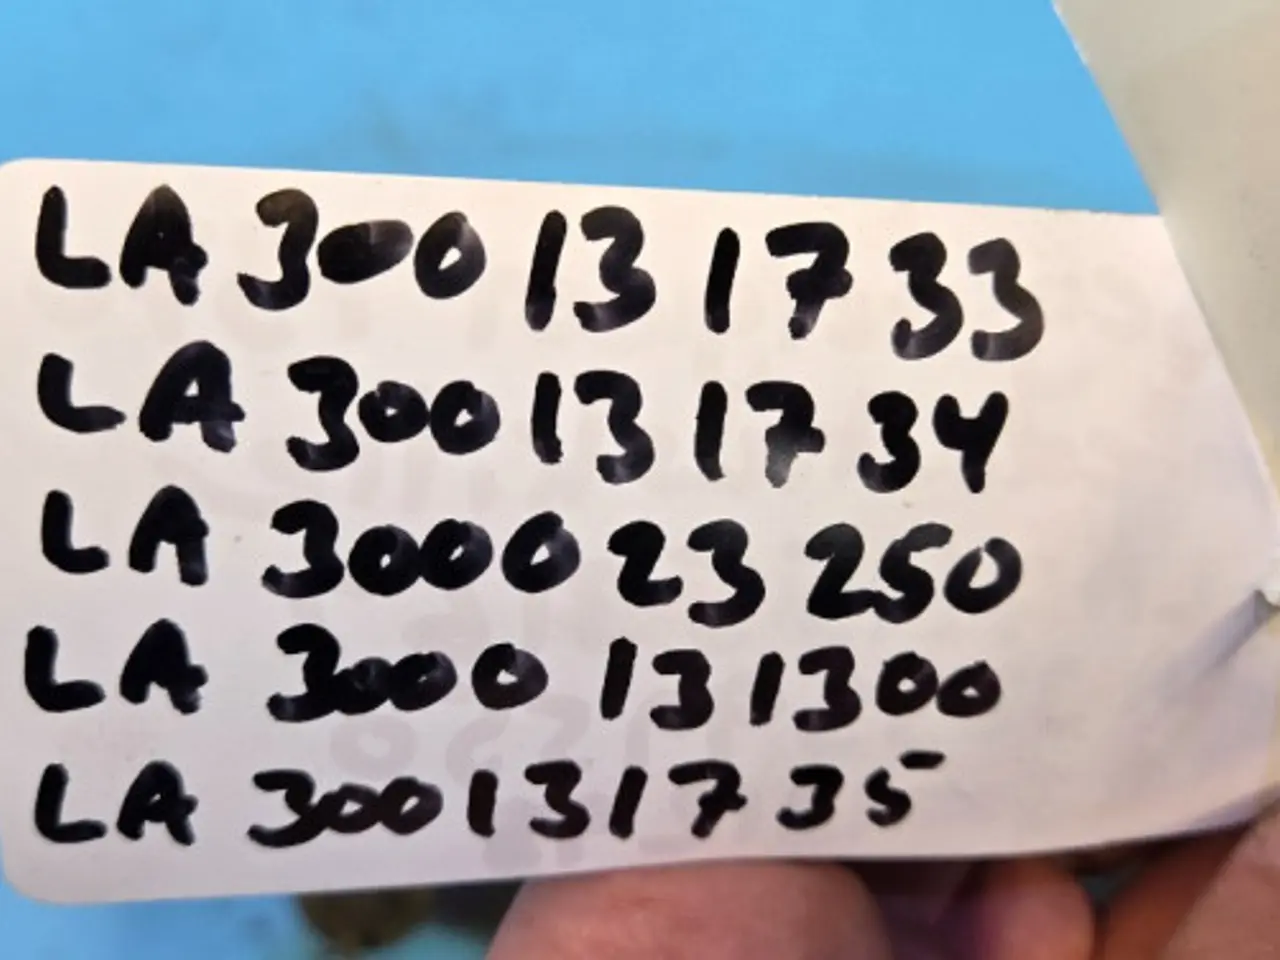 LA 300 13 17 33
LA 300 13 17 34
LA 3000 23 250
LA 3000 13 1300
LA 300131735